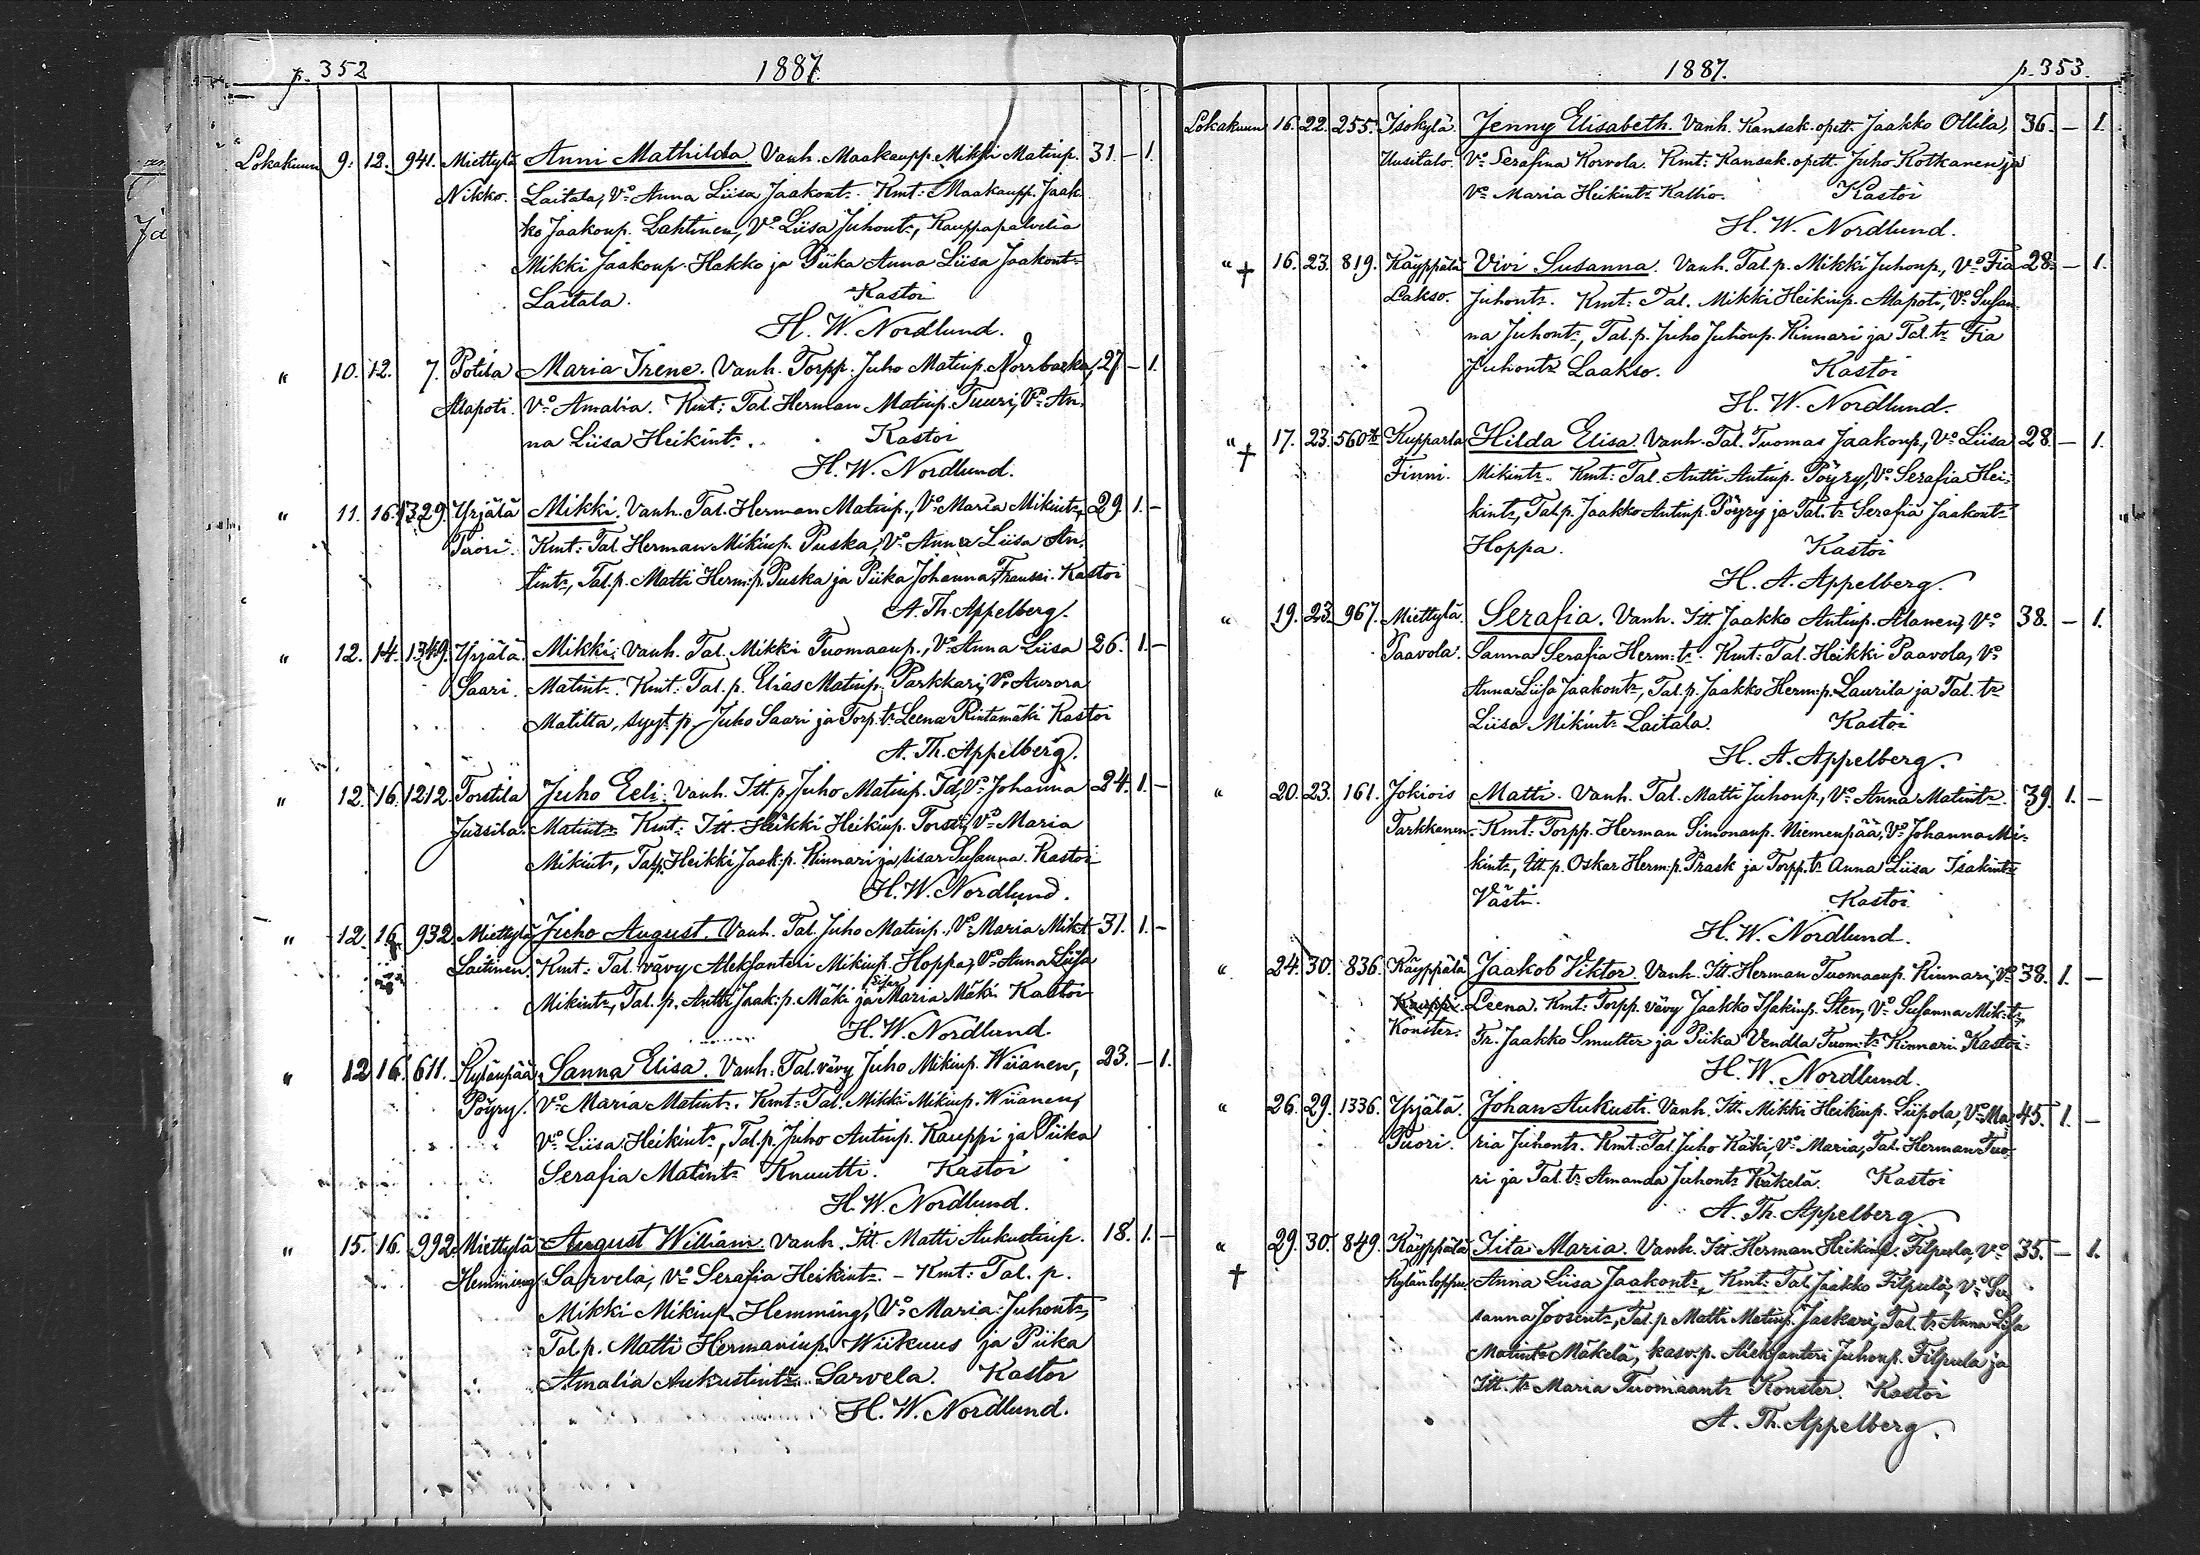 p. 352
1887.
Lokakuun 9. 12. 941. Miettylä Anni Mathilda. Vanh. Maakaupp. Mikki Matinp. 31. — 1.
Nikko. Laitala, Vo Anna Liisa Jaakont. Kmt: Maakaupp. Jaak-
ko Jaakonp. Lahtinen, Vo Liisa Juhont., Kauppapalvelia
Mikki Jaakonp. Hakko ja Piika Anna Liisa Jaakont.
Laitala. Kastoi
H. W. Nordlund.
" 10. 12. 7. Potila Maria Irene. Vanh. Torpp. Juho Matinp. Norrbacka, 27 — 1.
Alapoti. Vo Amalia. Kmt: Tal. Herman Matinp. Tuuri, Vo An-
na Liisa Heikint. Kastoi
H. W. Nordlund.
" 11. 16. 1329. Yrjälä Mikki. Vanh. Tal. Herman Matinp., Vo Maria Mikint., 29 1. —
Tuori. Kmt: Tal. Herman Mikinp. Puska, Vo Anna Liisa An-
tint., Tal.p. Matti Herm:p. Puska ja Piika Johanna Franssi. Kastoi
A. Th. Appelberg.
" 12. 14. 1349. Yrjälä. Mikki. Vanh. Tal. Mikki Tuomaanp., Vo Anna Liisa 26. 1. —
Saari. Matint. Kmt: Tal. p. Elias Matinp. Parkkari, Vo Aurora
Matilta, syyt. p. Juho Saari ja Torp. tr Leena Rintamäki Kastoi
A. Th. Appelberg.
" 12. 16. 1212. Torstila Juho Eeli. Vanh. Itt. p. Juho Matinp. Id, Vo Johanna 24. 1. —
Jussila. Matint. Kmt: Itt. Heikki Heikinp. Torsti, Vo Maria
Mikint., Tal.p. Heikki Jaak:p. Kinnari ja sisar Susanna. Kastoi
H. W. Nordlund.
" 12. 16. 932. Miettylä Juho August. Vanh. Tal. Juho Matinp., Vo Maria Mikt. 31. 1. —
Laitinen. Kmt: Tal. vävy Aleksanteri Mikinp. Hoppa, Vo Anna Liisa
Mikint., Tal. p. Antti Jaak:p. Mäki ja sisar Maria Mäki Kastoi
H. W. Nordlund.
" 12 16. 611. Kylänpää Sanna Elisa. Vanh. Tal. vävy Juho Mikinp. Wiianen, 23. — 1.
Pöyry. Vo Maria Matint. Kmt: Tal. Mikki Mikinp. Wiianen,
Vo Liisa Heikint., Tal. p. Juho Antinp. Kauppi ja Piika
Serafia Matint. Knuutti. Kastoi
H. W. Nordlund.
" 15. 16. 992. Miettylä August William. Vanh. Itt. Matti Aukustinp. 18. 1. —
Hemming Sarvela, Vo Serafia Heikint. – Kmt: Tal. p.
Mikki Mikinp. Hemming, Vo Maria Juhont.,
Tal. p. Matti Hermaninp. Wiikuus ja Piika
Amalia Aukustint. Sarvela. Kastoi
H. W. Nordlund.
1887. p. 353.
Lokakuun 16. 22. 255. Isokylä Jenny Elisabeth. Vanh. Kansak. opett. Jaakko Ollila 36. — 1.
Uusitalo. Vo Serafina Korvola. Kmt: Kansak. opett. Juho Kotkanen ja
Vo Maria Heikint. Kallio. Kastoi
H. W. Nordlund.
" † 16. 23. 819. Käyppälä Vivi Susanna. Vanh. Tal. p. Mikki Juhonp., Vo Fia 28. — 1.
Lakso. Juhont. Kmt: Tal. Mikki Heikinp. Alapoti, Vo Susan-
na Juhont., Tal. p. Juho Juhonp. Kinnari ja Tal. tr Fia
Juhont. Laakso. Kastoi
H. W. Nordlund.
" † 17. 23. 560 Kupparla Hilda Elisa. Vanh. Tal. Tuomas Jaakonp., Vo Liisa 28. — 1.
Finni. Mikint. Kmt: Tal. Antti Antinp. Pöyry, Vo Serafia Hei-
kint., Tal.p. Jaakko Antinp. Pöyry ja Tal. tr Serafia Jaakont.
Hoppa. Kastoi
H. A. Appelberg.
" 19. 23. 967. Miettylä. Serafia. Vanh. Itt. Jaakko Antinp. Alanen, Vo 38. — 1.
Paavola. Sanna Serafia Herm:t. Kmt: Tal. Heikki Paavola, Vo
Anna Liisa Jaakont., Tal. p. Jaakko Herm:p. Laurila ja Tal. tr
Liisa Mikint. Laitala. Kastoi
H. A. Appelberg.
" 20. 23. 161. Jokiois Matti. Vanh. Tal. Matti Juhonp., Vo Anna Matint. 39. 1. —
Tarkkanen. Kmt: Torpp. Herman Simonanp. Niemenpää, Vo Johanna Mi-
kint., Itt. p. Oskar Herm:p. Prask ja Torpp. tr Anna Liisa Isakint.
Västi. Kastoi
H. W. Nordlund.
" 24. 30. 836. Käyppälä Jaakob Viktor. Vanh. Itt. Herman Tuomaanp. Kinnari, Vo 38. 1. —
Kauppi. Leena. Kmt: Torpp. vävy Jaakko Isakinp. Sten, Vo Susanna Mik:t.,
Konster. Tr. Jaakko Smulter ja Piika Vendla Tuom:t. Kinnari Kastoi
H. W. Nordlund.
" 26. 29. 1336. Yrjälä. Johan Aukusti. Vanh. Itt. Mikki Heikinp. Siipola, Vo Ma- 45. 1. —
Tuori. ria Juhont. Kmt: Tal. Juho Käki, Vo Maria, Tal. Herman Tuo-
ri ja Tal. tr Amanda Juhont. Käkelä. Kastoi
A. Th. Appelberg
" † 29. 30. 849. Käyppälä Iita Maria. Vanh. Itt. Herman Heikinp. Filpula, Vo 35. — 1.
Kylänloppu. Anna Liisa Jaakont., Kmt: Tal. Jaakko Filpula, Vo Su-
sanna Joosint., Tal. p. Matti Matinp. Jaskari, Tal. tr Anna Lisa
Matint. Mäkelä, kasv. p. Aleksanteri Juhonp. Filpula ja
Itt. tr Maria Tuomaant. Konster. Kastoi
A. Th. Appelberg.